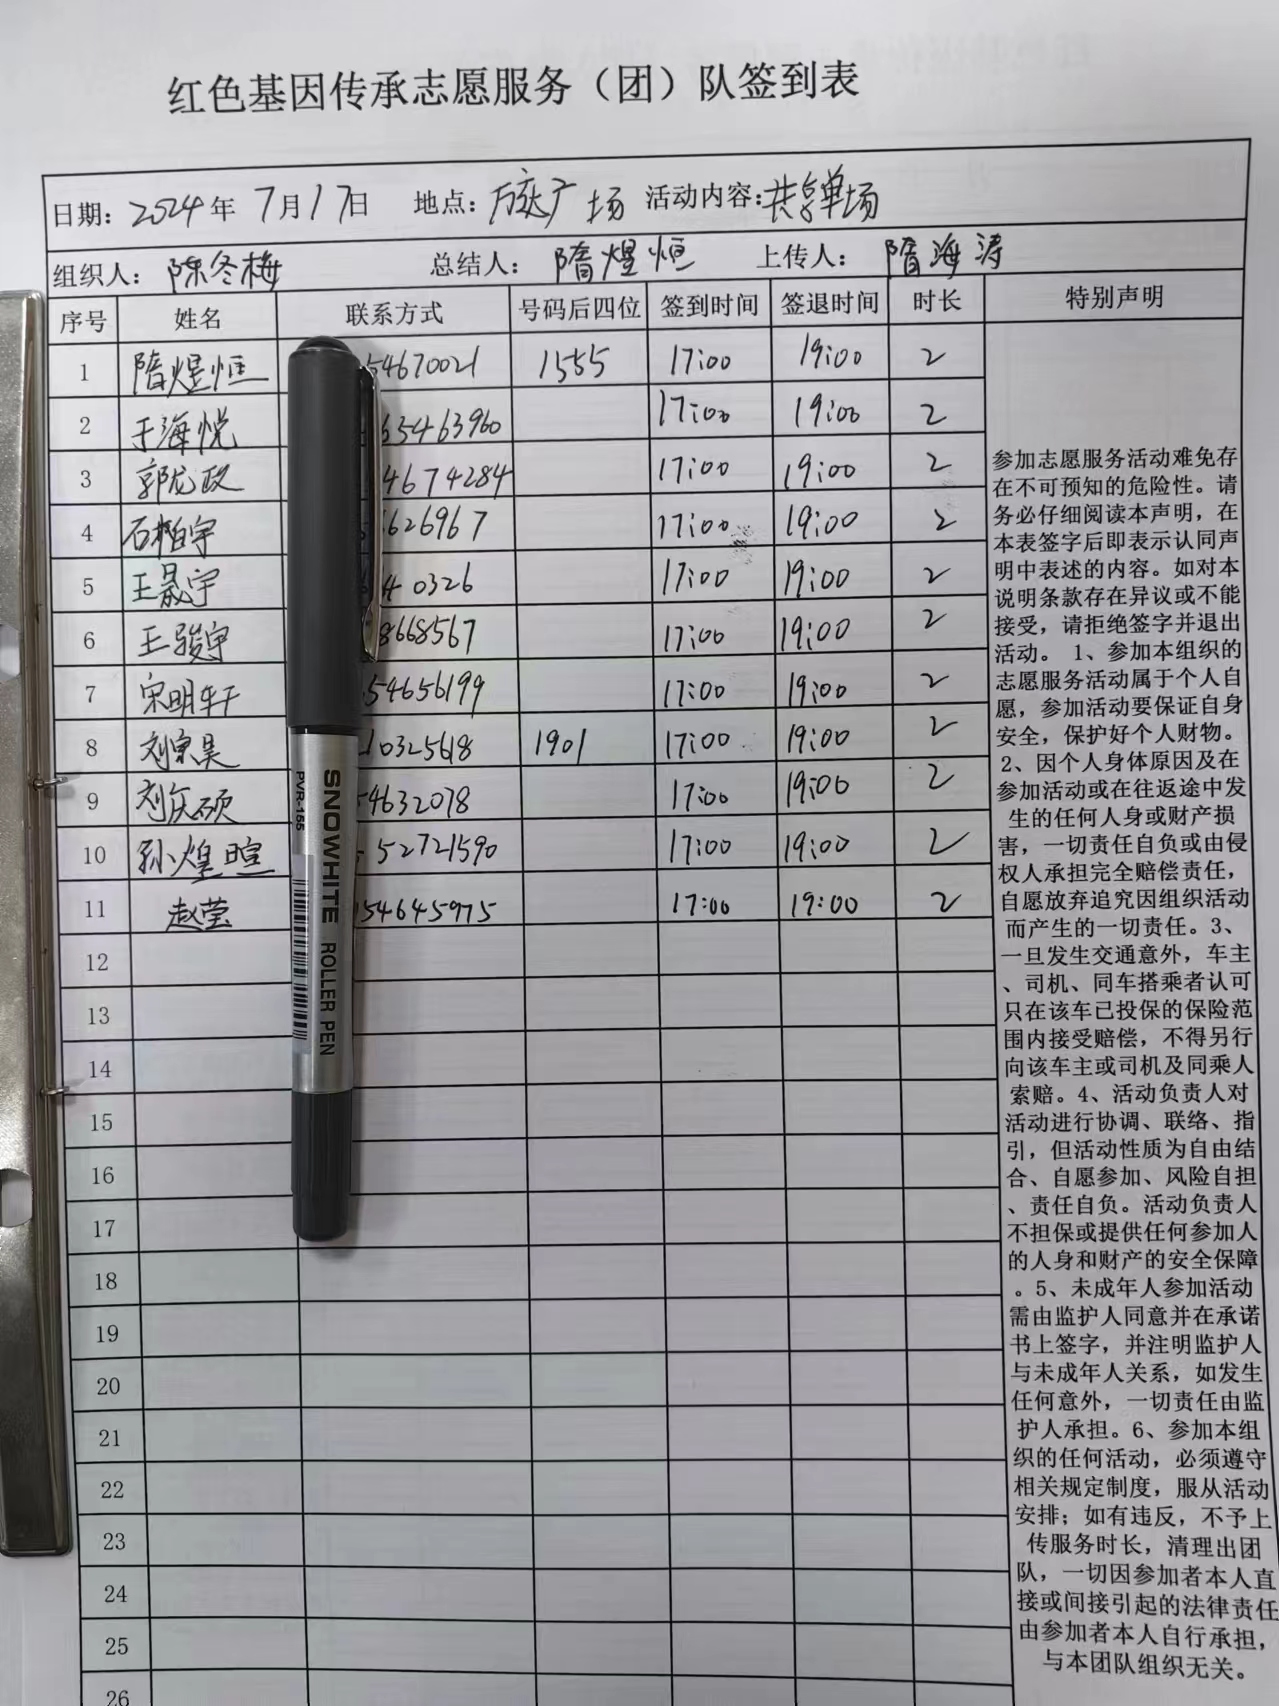 红色基因传承志愿服务（团）队签到表
日期：2024年 7月17日 地点：万达广场 活动内容：共享单场
组织人：陈冬梅 总结人：隋煜恒 上传人：隋海涛
序号 姓名 联系方式 号码后四位 签到时间 签退时间 时长 特别声明
1 隋煜恒 54670021 1555 17:00 19:00 2
2 于海悦 65463960 17:00 19:00 2
3 郭龙政 4674284 17:00 19:00 2
4 石柏宇 626967 17:00 19:00 2
5 王晟宇 0326 17:00 19:00 2
6 王骏宇 8668567 17:00 19:00 2
7 宋明轩 54656199 17:00 19:00 2
8 刘宗昊 10325618 1901 17:00 19:00 2
9 刘庆硕 4632078 17:00 19:00 2
10 孙煌暄 52721590 17:00 19:00 2
11 赵莹 54645975 17:00 19:00 2
12
13
14
15
16
17
18
19
20
21
22
23
24
25
26
参加志愿服务活动难免存
在不可预知的危险性。请
务必仔细阅读本声明，在
本表签字后即表示认同声
明中表述的内容。如对本
说明条款存在异议或不能
接受，请拒绝签字并退出
活动。 1、参加本组织的
志愿服务活动属于个人自
愿，参加活动要保证自身
安全，保护好个人财物。
2、因个人身体原因及在
参加活动或在往返途中发
生的任何人身或财产损
害，一切责任自负或由侵
权人承担完全赔偿责任，
自愿放弃追究因组织活动
而产生的一切责任。3、
一旦发生交通意外，车主
、司机、同车搭乘者认可
只在该车已投保的保险范
围内接受赔偿，不得另行
向该车主或司机及同乘人
索赔。4、活动负责人对
活动进行协调、联络、指
引，但活动性质为自由结
合、自愿参加、风险自担
、责任自负。活动负责人
不担保或提供任何参加人
的人身和财产的安全保障
。5、未成年人参加活动
需由监护人同意并在承诺
书上签字，并注明监护人
与未成年人关系，如发生
任何意外，一切责任由监
护人承担。6、参加本组
织的任何活动，必须遵守
相关规定制度，服从活动
安排；如有违反，不予上
传服务时长，清理出团
队，一切因参加者本人直
接或间接引起的法律责任
由参加者本人自行承担，
与本团队组织无关。
SNOWHITE ROLLER PEN
PVR-155